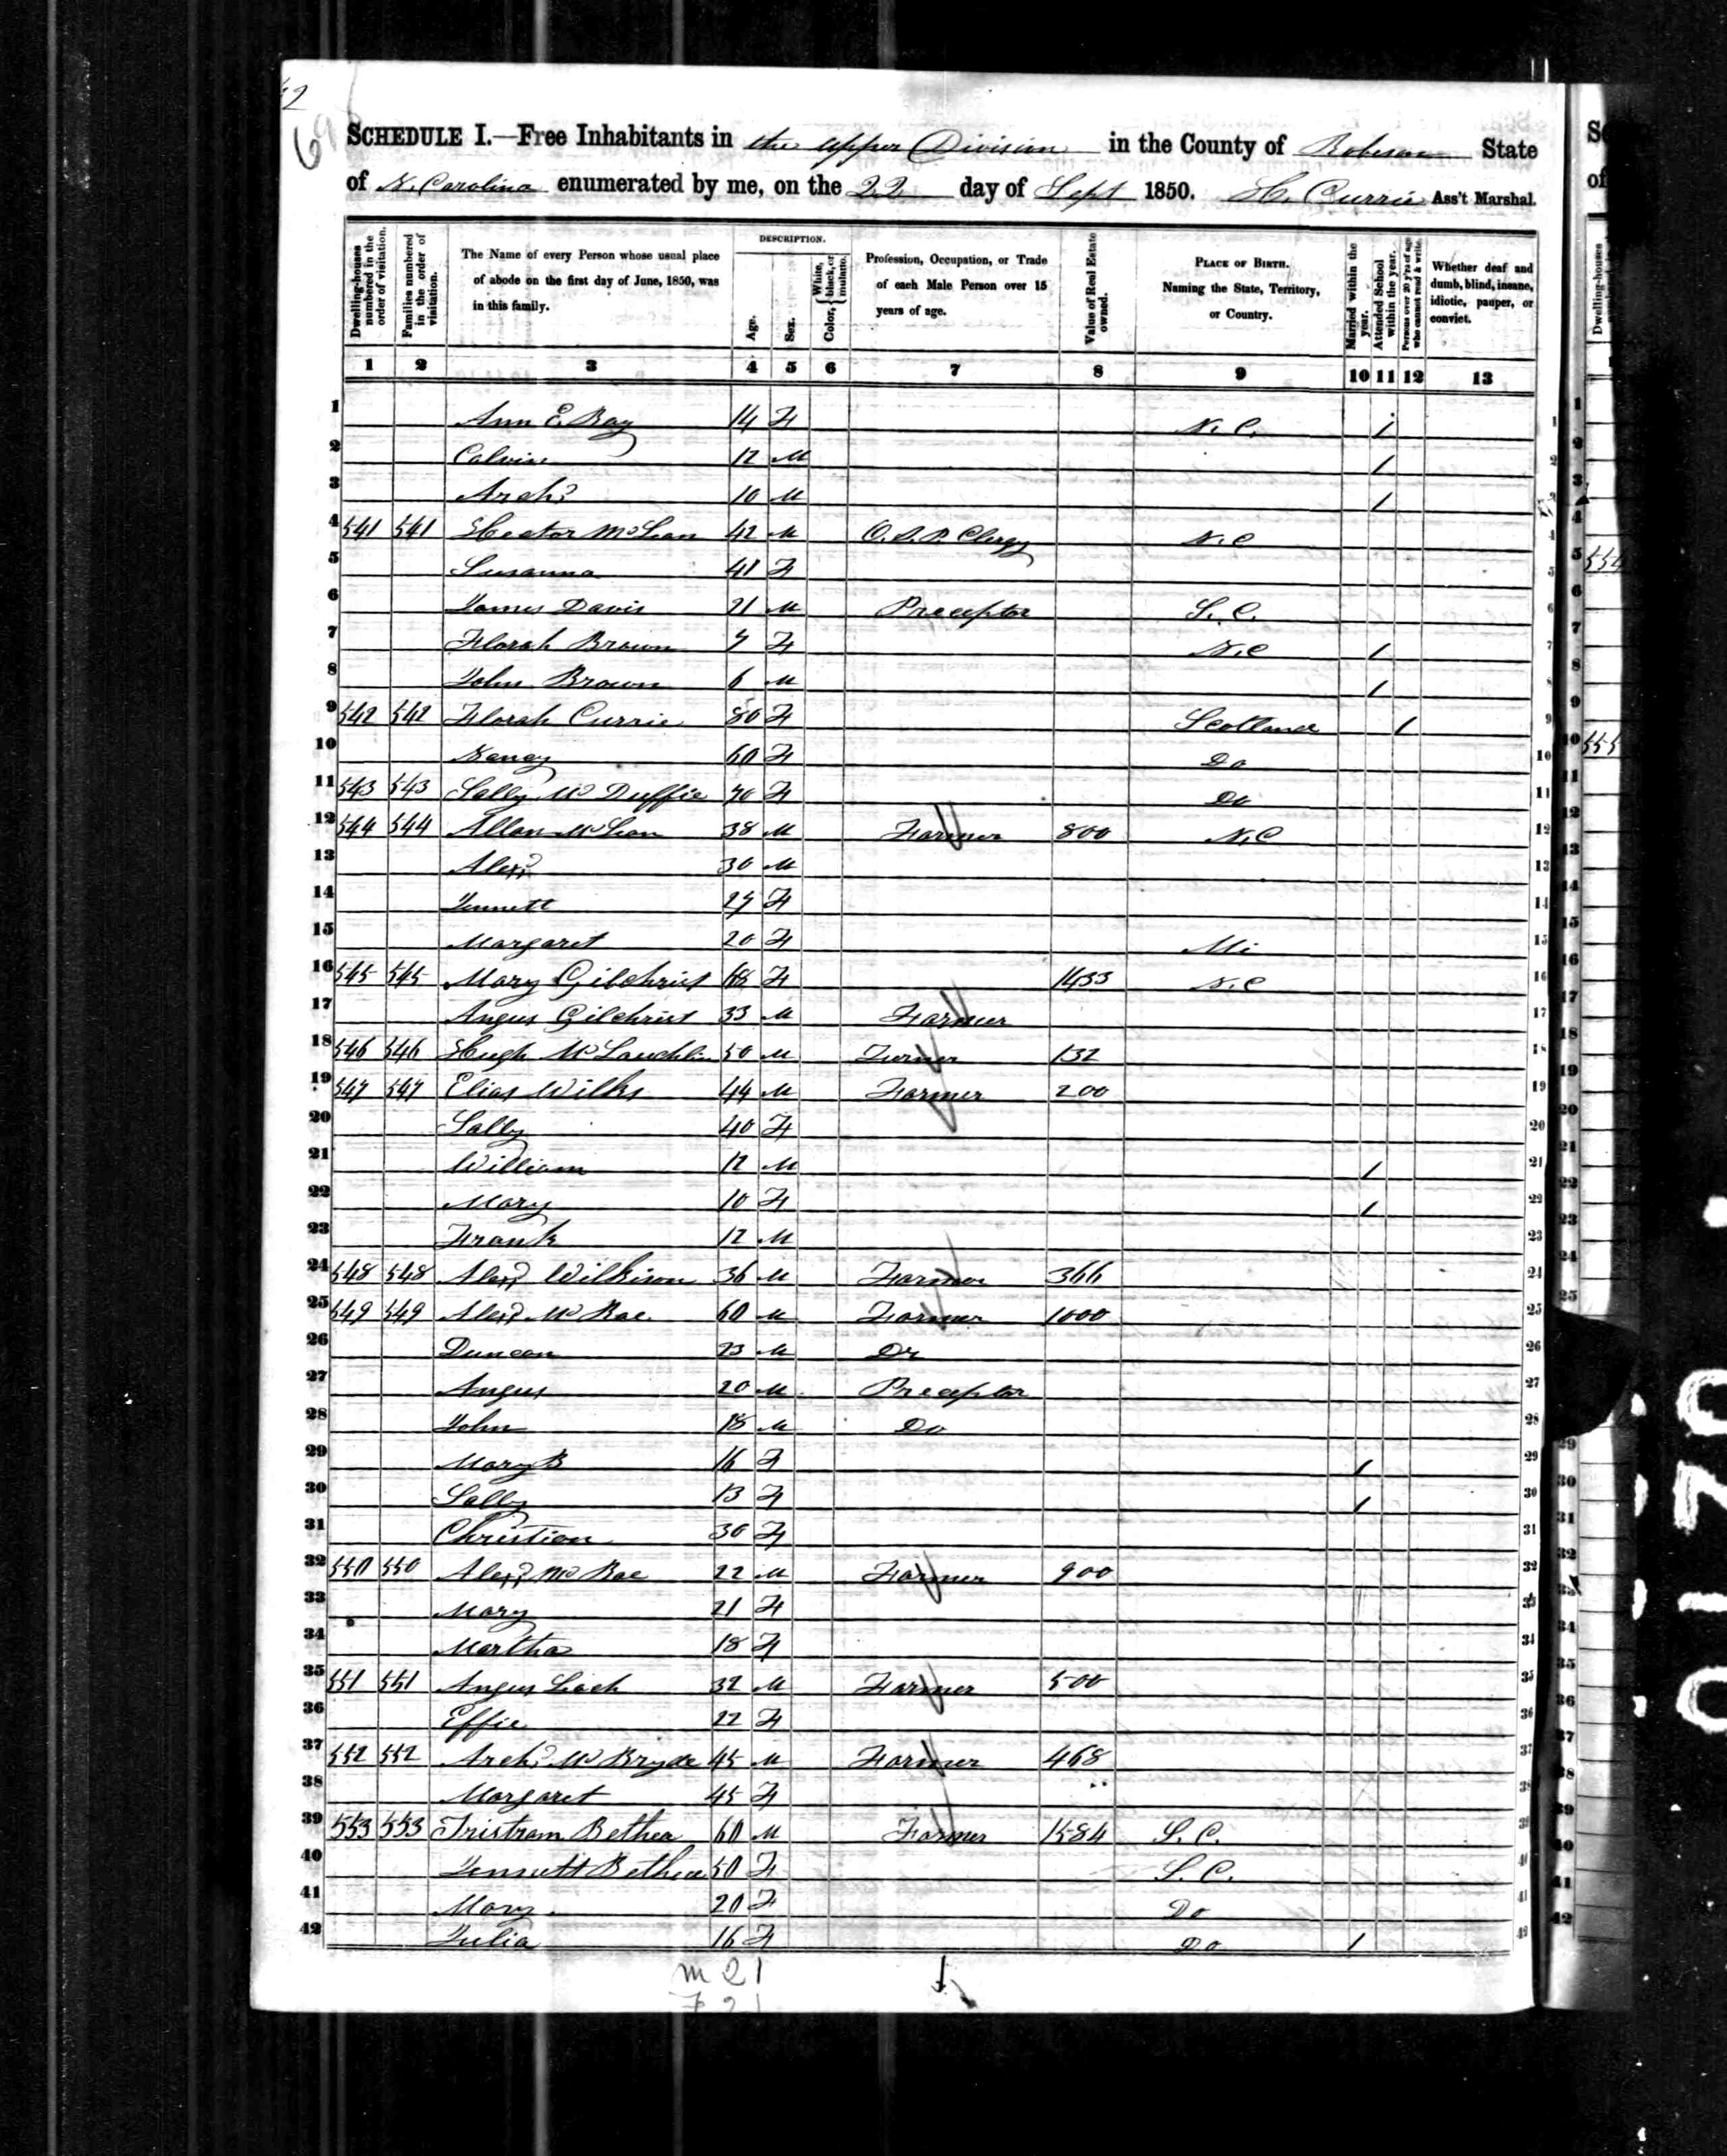 SCHEDULE I.—Free Inhabitants in the upper Division in the County of Robeson State
of N. Carolina enumerated by me, on the 22 day of Sept 1850. H. Currie Ass't Marshal.
Dwelling-houses numbered in the order of visitation.
Families numbered in the order of visitation.
The Name of every Person whose usual place of abode on the first day of June, 1850, was in this family.
DESCRIPTION.
Age.
Sex.
Color, White, black, or mulatto.
Profession, Occupation, or Trade of each Male Person over 15 years of age.
Value of Real Estate owned.
PLACE OF BIRTH. Naming the State, Territory, or Country.
Married within the year.
Attended School within the year.
Persons over 20 y'rs of age who cannot read & write.
Whether deaf and dumb, blind, insane, idiotic, pauper, or convict.
1 2 3 4 5 6 7 8 9 10 11 12 13
1 Ann E. Ray 14 F N. C. 1 1
2 Calvin 12 M 1 2
3 Archd 10 M 1 3
4 541 541 Hector McLean 42 M O. S. P. Clergy N. C 4
5 Susanna 41 F 5
6 James Davis 21 M Preceptor S. C. 6
7 Florah Brown 7 F N. C 1 7
8 John Brown 6 M 1 8
9 542 542 Florah Currie 80 F Scotland 1 9
10 Nancy 60 F Do 10
11 543 543 Sally McDuffie 70 F Do 11
12 544 544 Allan McLean 38 M Farmer 800 N. C 12
13 Alexd 30 M 13
14 Jennett 27 F 14
15 Margaret 20 F Mi 15
16 545 545 Mary Gilchrist 68 F 1433 N. C 16
17 Angus Gilchrist 33 M Farmer 17
18 546 546 Hugh McLauchlin 50 M Turner 132 18
19 547 547 Elias Wilks 44 M Farmer 200 19
20 Sally 40 F 20
21 William 12 M 1 21
22 Mary 10 F 1 22
23 Frank 12 M 23
24 548 548 Alexd Wilkison 36 M Farmer 366 24
25 549 549 Alexd McRae 60 M Farmer 1000 25
26 Duncan 23 M Dr 26
27 Angus 20 M Preceptor 27
28 John 18 M Do 28
29 Mary B 16 F 1 29
30 Sally 13 F 1 30
31 Christian 30 F 31
32 550 550 Alexd McRae 22 M Farmer 900 32
33 Mary 21 F 33
34 Martha 18 F 34
35 551 551 Angus Leach 32 M Farmer 500 35
36 Effie 22 F 36
37 552 552 Archd McBryde 45 M Farmer 468 37
38 Margaret 45 F 38
39 553 553 Tristram Bethea 60 M Farmer 1584 S. C. 39
40 Jennett Bethea 50 F S. C. 40
41 Mary 20 F Do 41
42 Julia 16 F Do 1 42
m 21
F 21